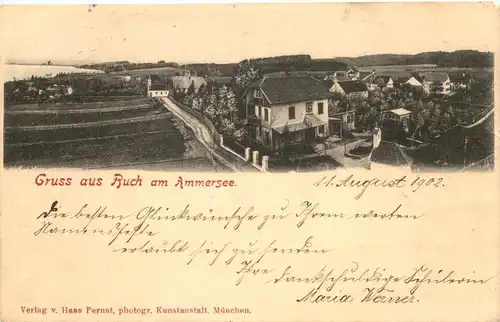 Gruss aus Buch am Ammersee.
11. August 1902.
Die besten Glückwünsche zu Ihrem werten
Namensfeste
erlaubt sich zu senden
Ihre dankschuldige Schülerin
Maria Werner.
Verlag v. Hans Pernat, photogr. Kunstanstalt, München.